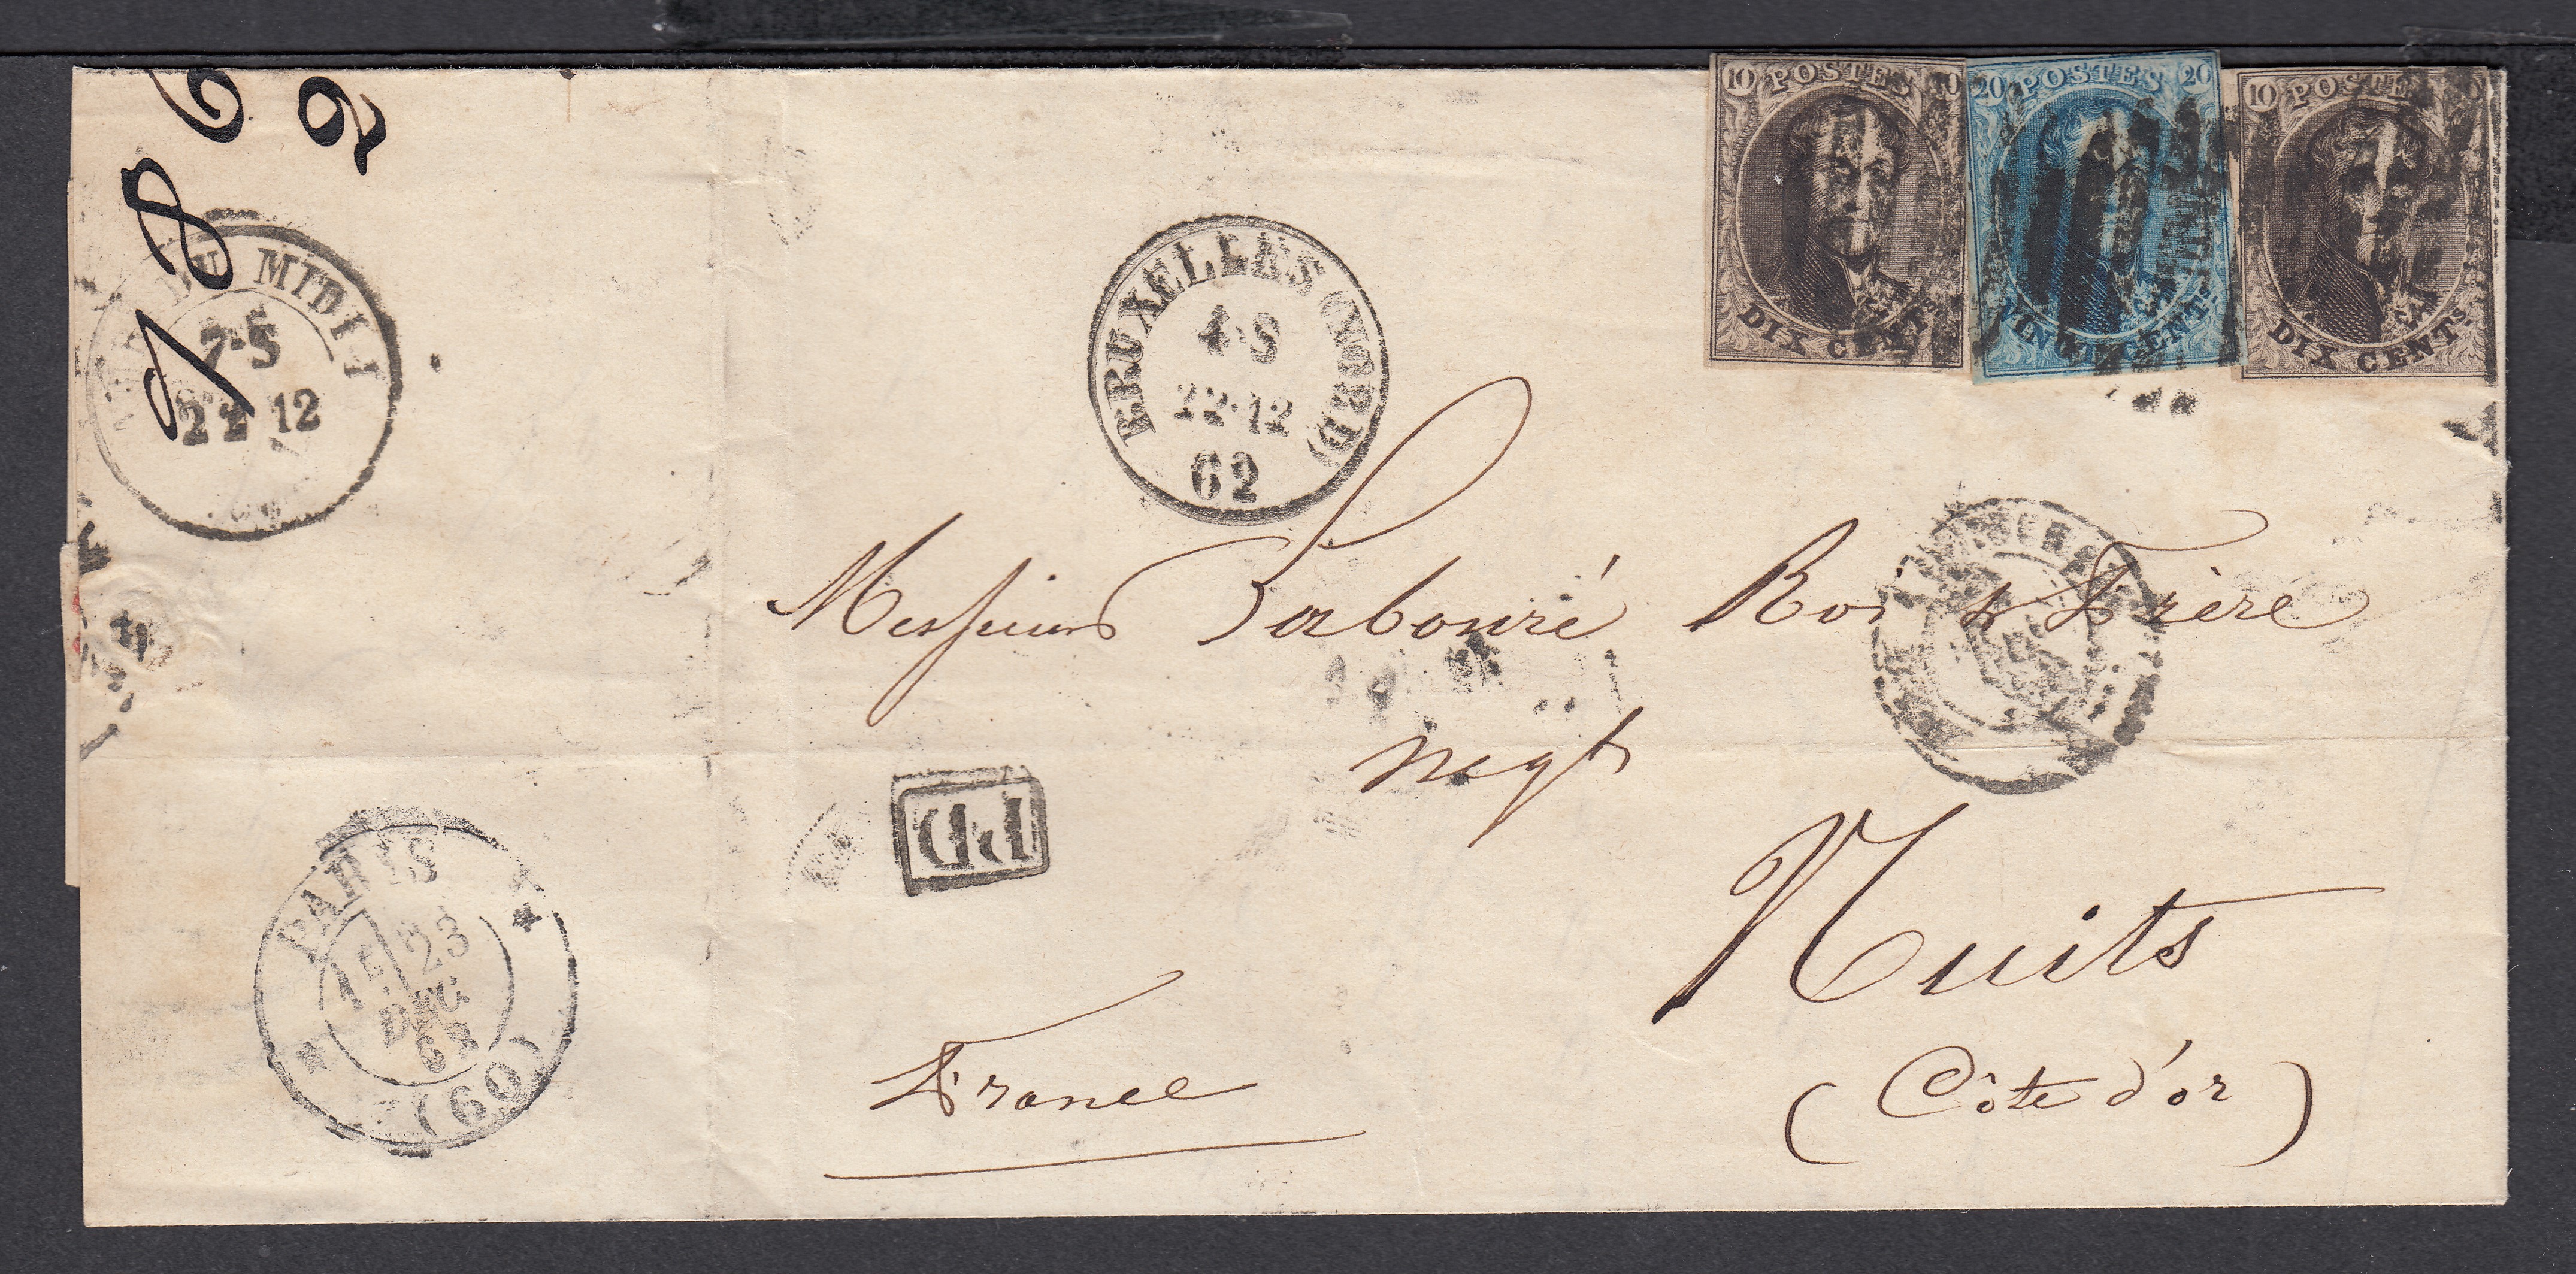 10 POSTES 10
DIX CENTS
20 POSTES 20
VINGT CENTS
10 POSTES
DIX CENTS
1862
DU MIDI I
7·S
22 12
BRUXELLES (NORD)
4·S
22·12
62
Messieurs Labouré Roi & Frère
Negts
Nuits
(Côte d'or)
France
PD
PARIS
23
DEC.
(60)